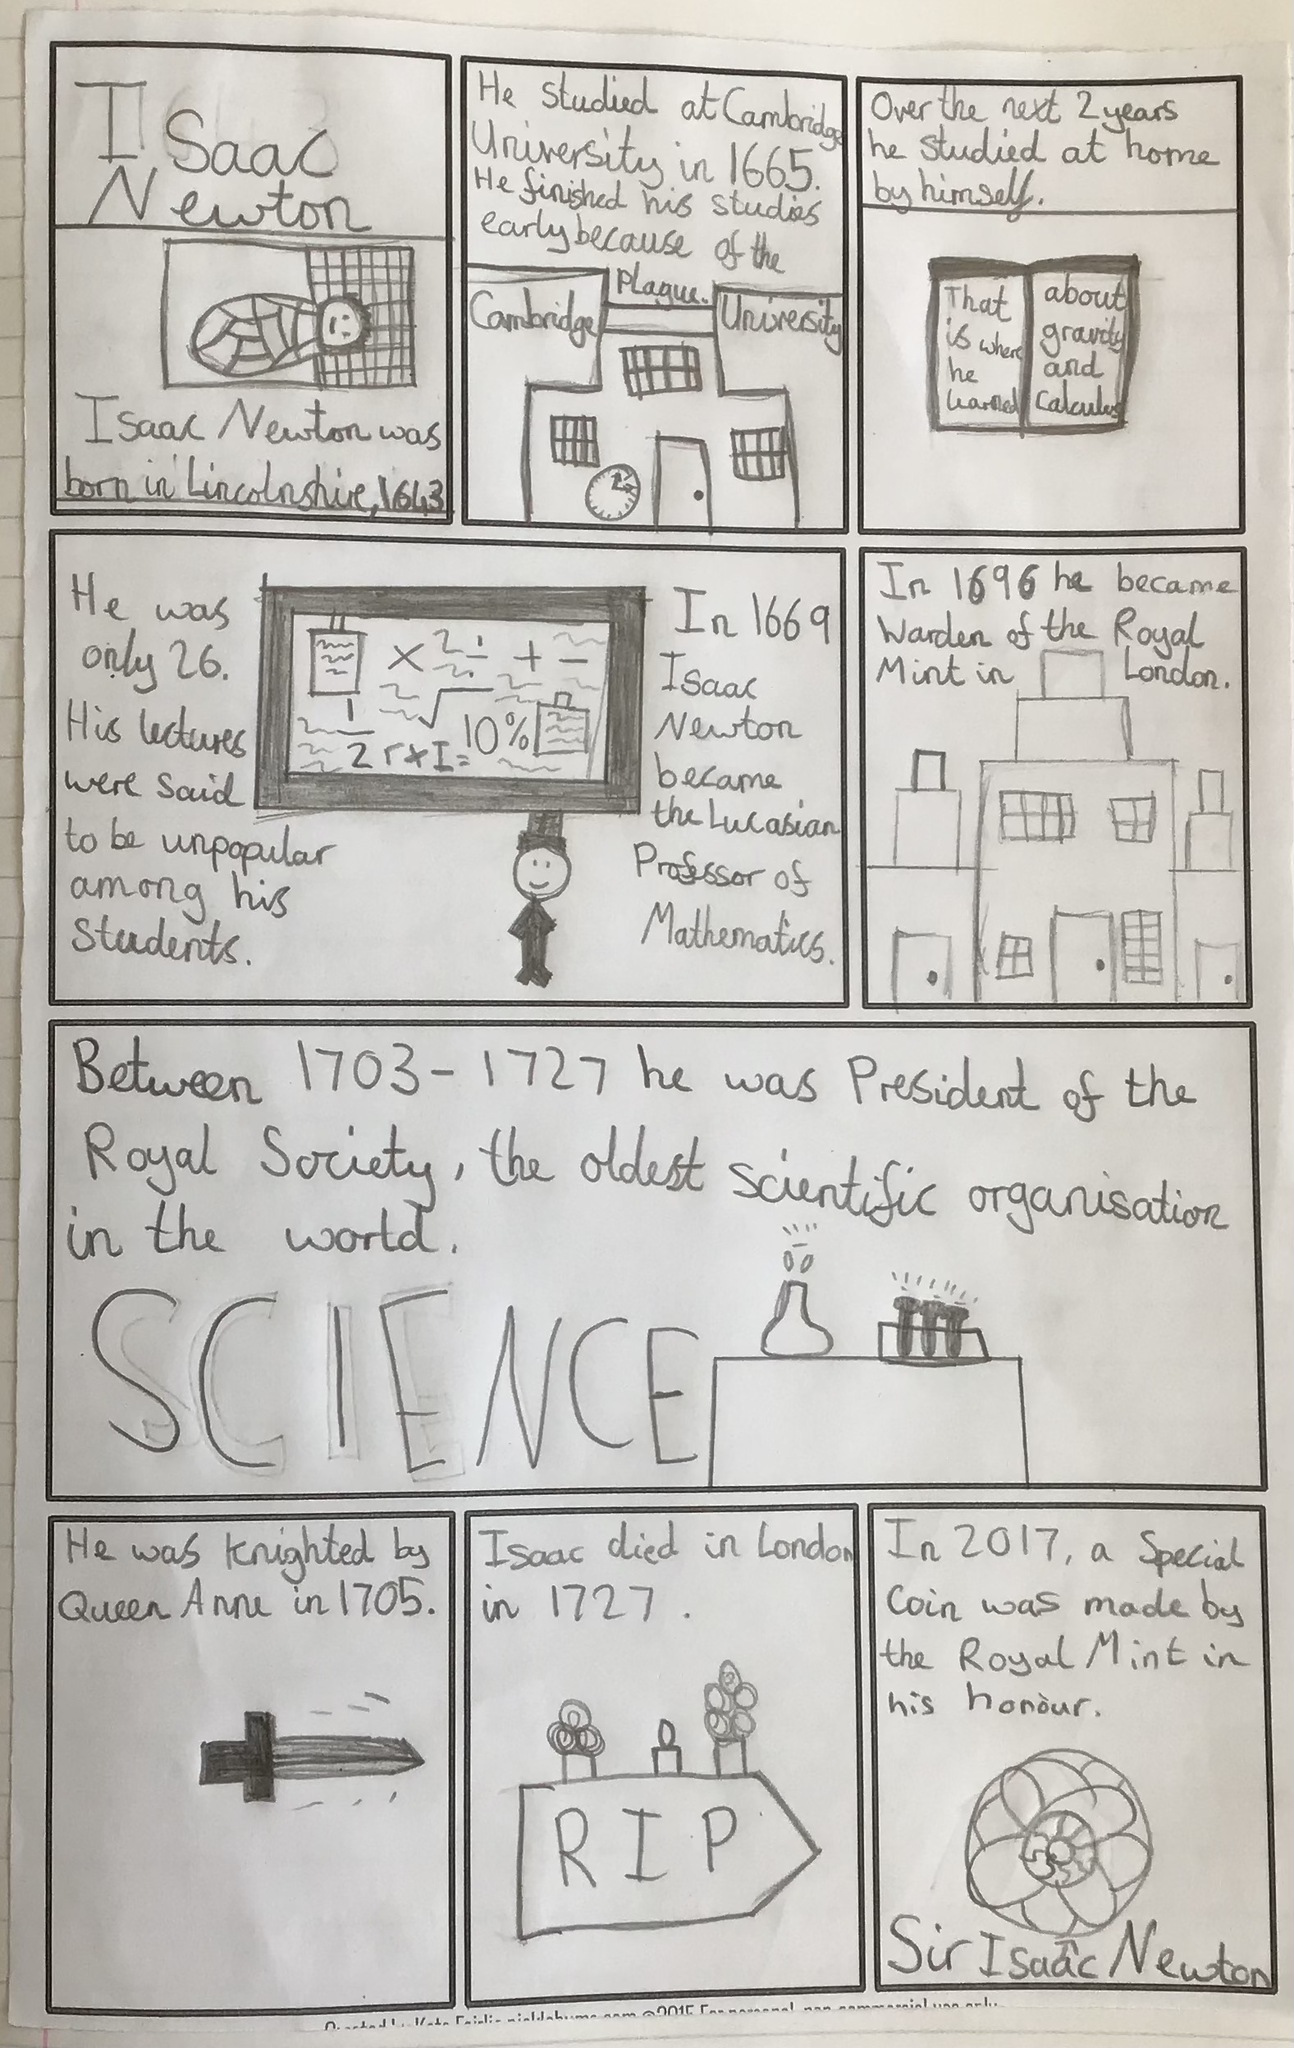 Isaac
Newton
Isaac Newton was
born in Lincolnshire, 1643
He studied at Cambridge
University in 1665.
He finished his studies
early because of the
Plague.
Cambridge
University
Over the next 2 years
he studied at home
by himself.
That
is where
he
learned
about
gravity
and
Calculus
He was
only 26.
His lectures
were said
to be unpopular
among his
students.
× 2 ÷ + -
1
2 r*I= √10%
In 1669
Isaac
Newton
became
the Lucasian
Professor of
Mathematics.
In 1696 he became
Warden of the Royal
Mint in London.
Between 1703 - 1727 he was President of the
Royal Society, the oldest scientific organisation
in the world.
SCIENCE
He was knighted by
Queen Anne in 1705.
Isaac died in London
in 1727.
RIP
In 2017, a Special
Coin was made by
the Royal Mint in
his honour.
Sir Isaac Newton
Created by Kate Fairlie picklebums.com ©2015 For personal, non-commercial use only.